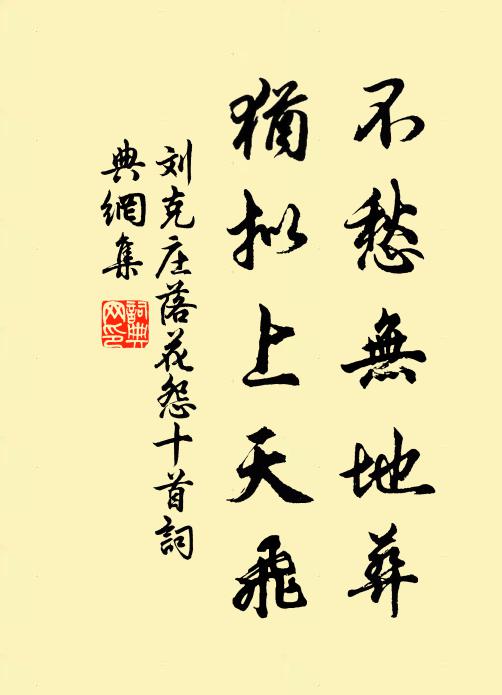 不愁無地葬
猶拟上天飛
刘克庄落花怨十首詞
典網集
詞典
网印